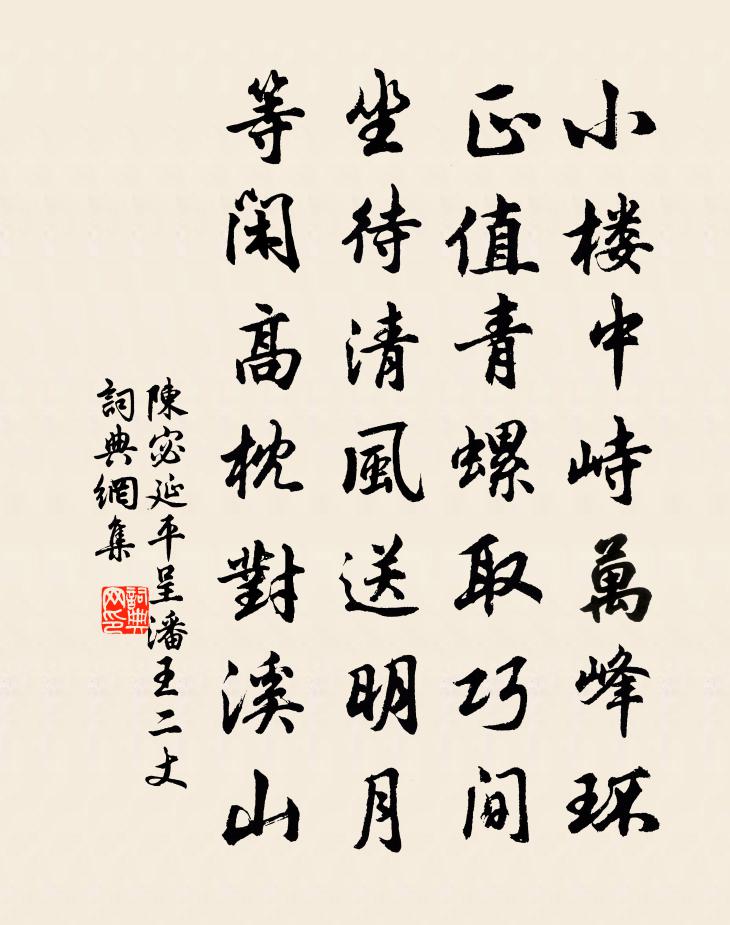 小楼中峙萬峰环
正值青螺取巧间
坐待清風送明月
等闲高枕對溪山
陳宓延平呈潘王二丈
詞典網集
詞典网印